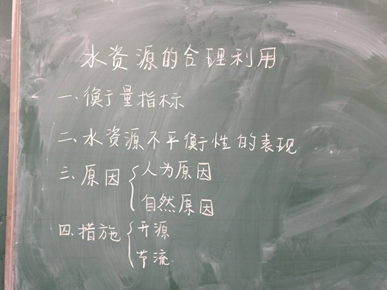 水资源的合理利用
一.衡量指标
二.水资源不平衡性的表现
三.原因{人为原因
自然原因
四.措施{开源
节流